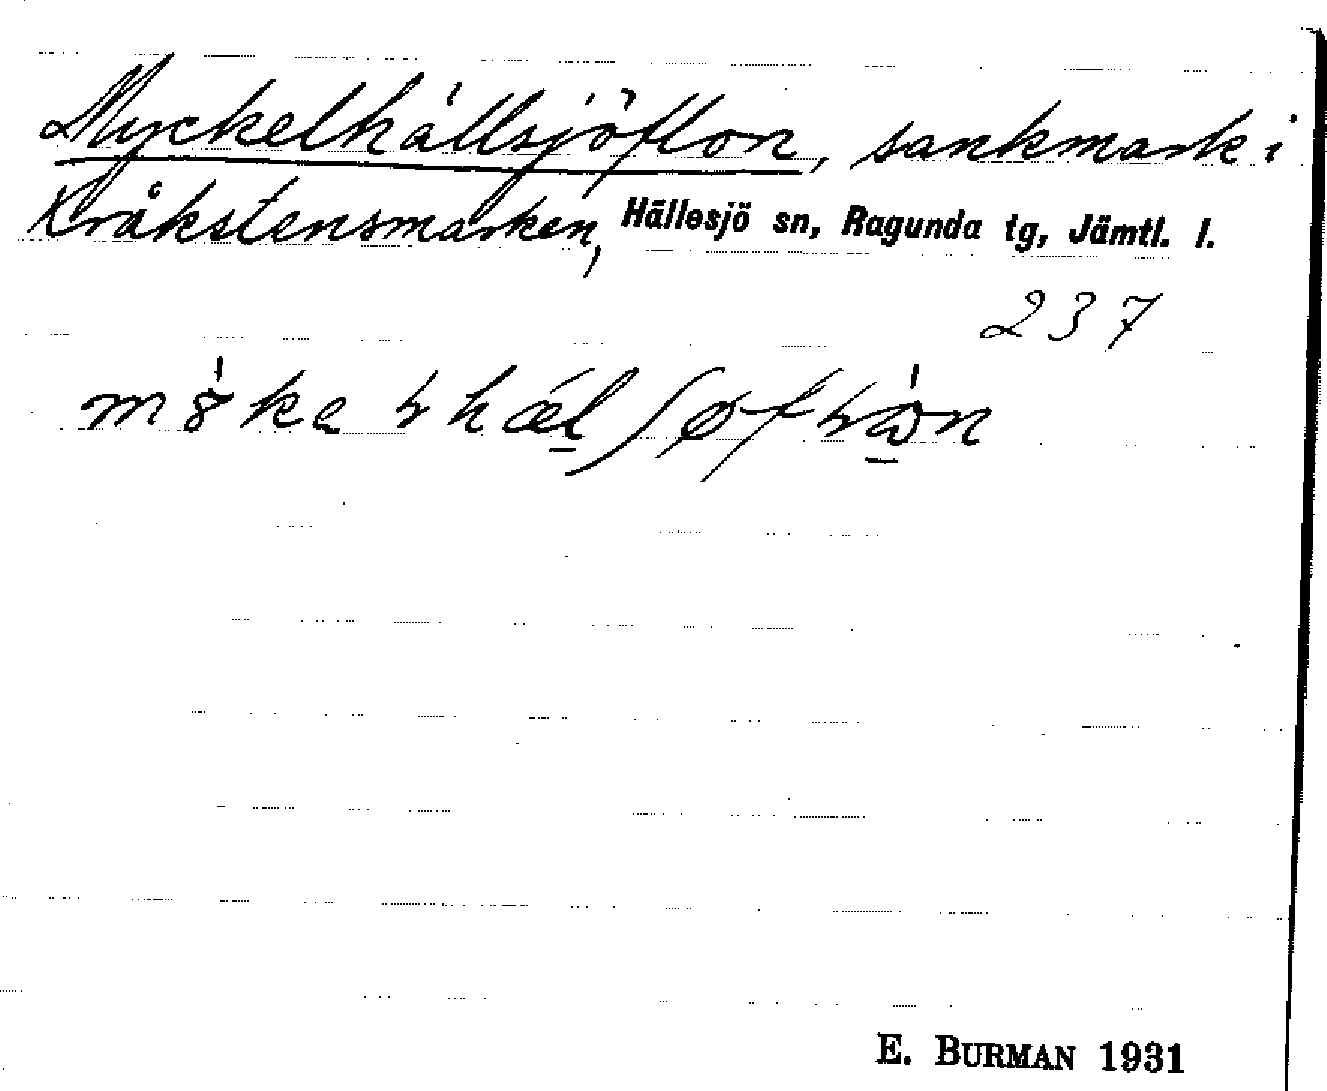 Myckelhällsjöflon, sankmark i
Kråkstensmarken, Hällesjö sn, Ragunda tg, Jämtl. l.
237
E. BURMAN 1931